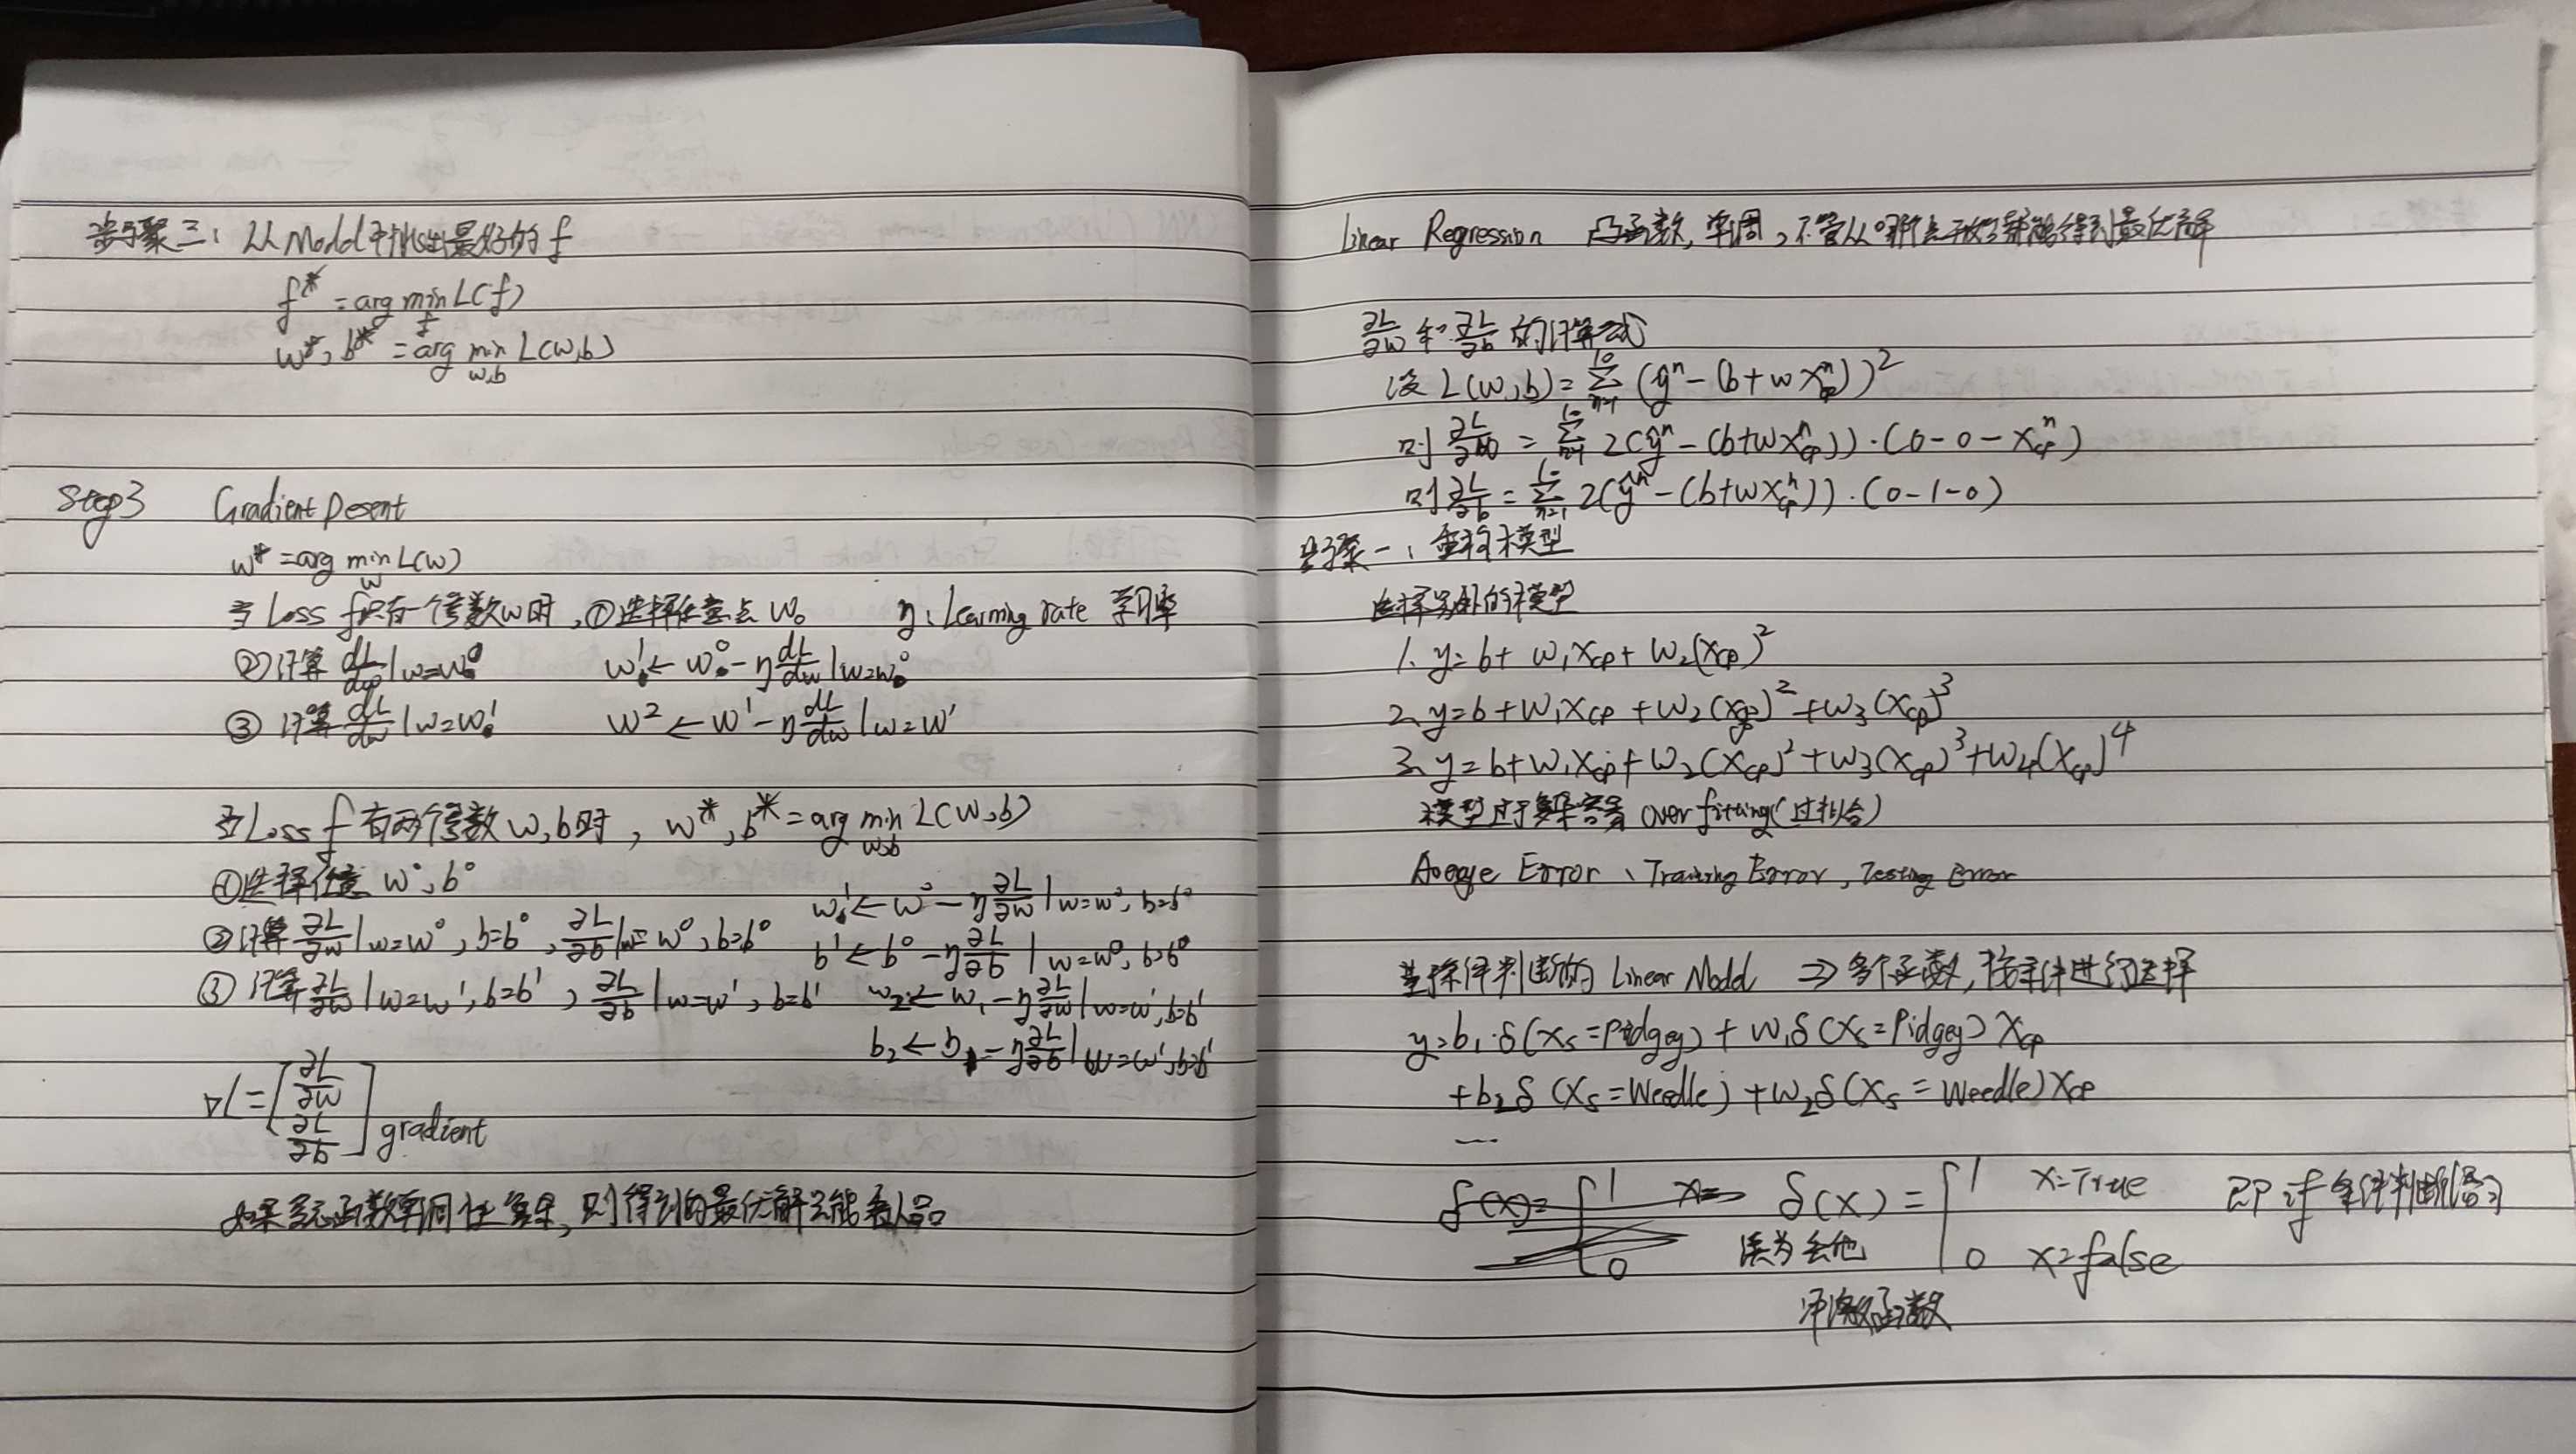 步骤三: 从Model中挑出最好的f
f* = arg min_f L(f)
w*, b* = arg min_{w,b} L(w,b)
Step3 Gradient Desent
w* = arg min_w L(w)
当Loss f只有一个参数w时, ①选择任意点 w₀ η: Learning rate 学习率
②计算 dL/dw |w=w⁰ w¹ ← w⁰ - η dL/dw |w=w⁰
③ 计算 dL/dw |w=w¹ w² ← w¹ - η dL/dw |w=w¹
当Loss f 有两个参数 w,b时, w*, b* = arg min_{w,b} L(w,b)
①选择任意 w⁰, b⁰
②计算 ∂L/∂w |w=w⁰, b=b⁰, ∂L/∂b |w=w⁰, b=b⁰ w¹ ← w⁰ - η ∂L/∂w |w=w⁰, b=b⁰
b¹ ← b⁰ - η ∂L/∂b |w=w⁰, b=b⁰
③ 计算 ∂L/∂w |w=w¹, b=b¹, ∂L/∂b |w=w¹, b=b¹ w₂ ← w₁ - η ∂L/∂w |w=w¹, b=b¹
b₂ ← b₁ - η ∂L/∂b |w=w¹, b=b¹
∇L = [∂L/∂w ∂L/∂b] gradient
如果 函数单调性复杂, 则得到的最优解 能看人品
Linear Regression 凸函数, 单调, 不管从哪个点开始 都能得到最优解
∂L/∂w 和 ∂L/∂b 的计算式
设 L(w,b) = Σ_{n=1}^{10} (ŷⁿ - (b + w x_cpⁿ))²
则 ∂L/∂w = Σ_{n=1}^{10} 2(ŷⁿ - (b + w x_cpⁿ)) · (0 - 0 - x_cpⁿ)
则 ∂L/∂b = Σ_{n=1}^{10} 2(ŷⁿ - (b + w x_cpⁿ)) · (0 - 1 - 0)
步骤一: 重构模型
选择另外的模型
1. y = b + w₁x_cp + w₂(x_cp)²
2. y = b + w₁x_cp + w₂(x_cp)² + w₃(x_cp)³
3. y = b + w₁x_cp + w₂(x_cp)² + w₃(x_cp)³ + w₄(x_cp)⁴
模型过于复杂容易 over fitting(过拟合)
Average Error、Training Error, Testing Error
条件判断的 Linear Model ⇒ 多个函数, 按条件进行选择
y = b₁·δ(x_s = Pidgey) + w₁δ(x_s = Pidgey) x_cp
+ b₂δ(x_s = Weedle) + w₂δ(x_s = Weedle) x_cp
...
δ(x) = { 1 x = True 即 if 条件判断语句
0 x = false
读为
冲激函数